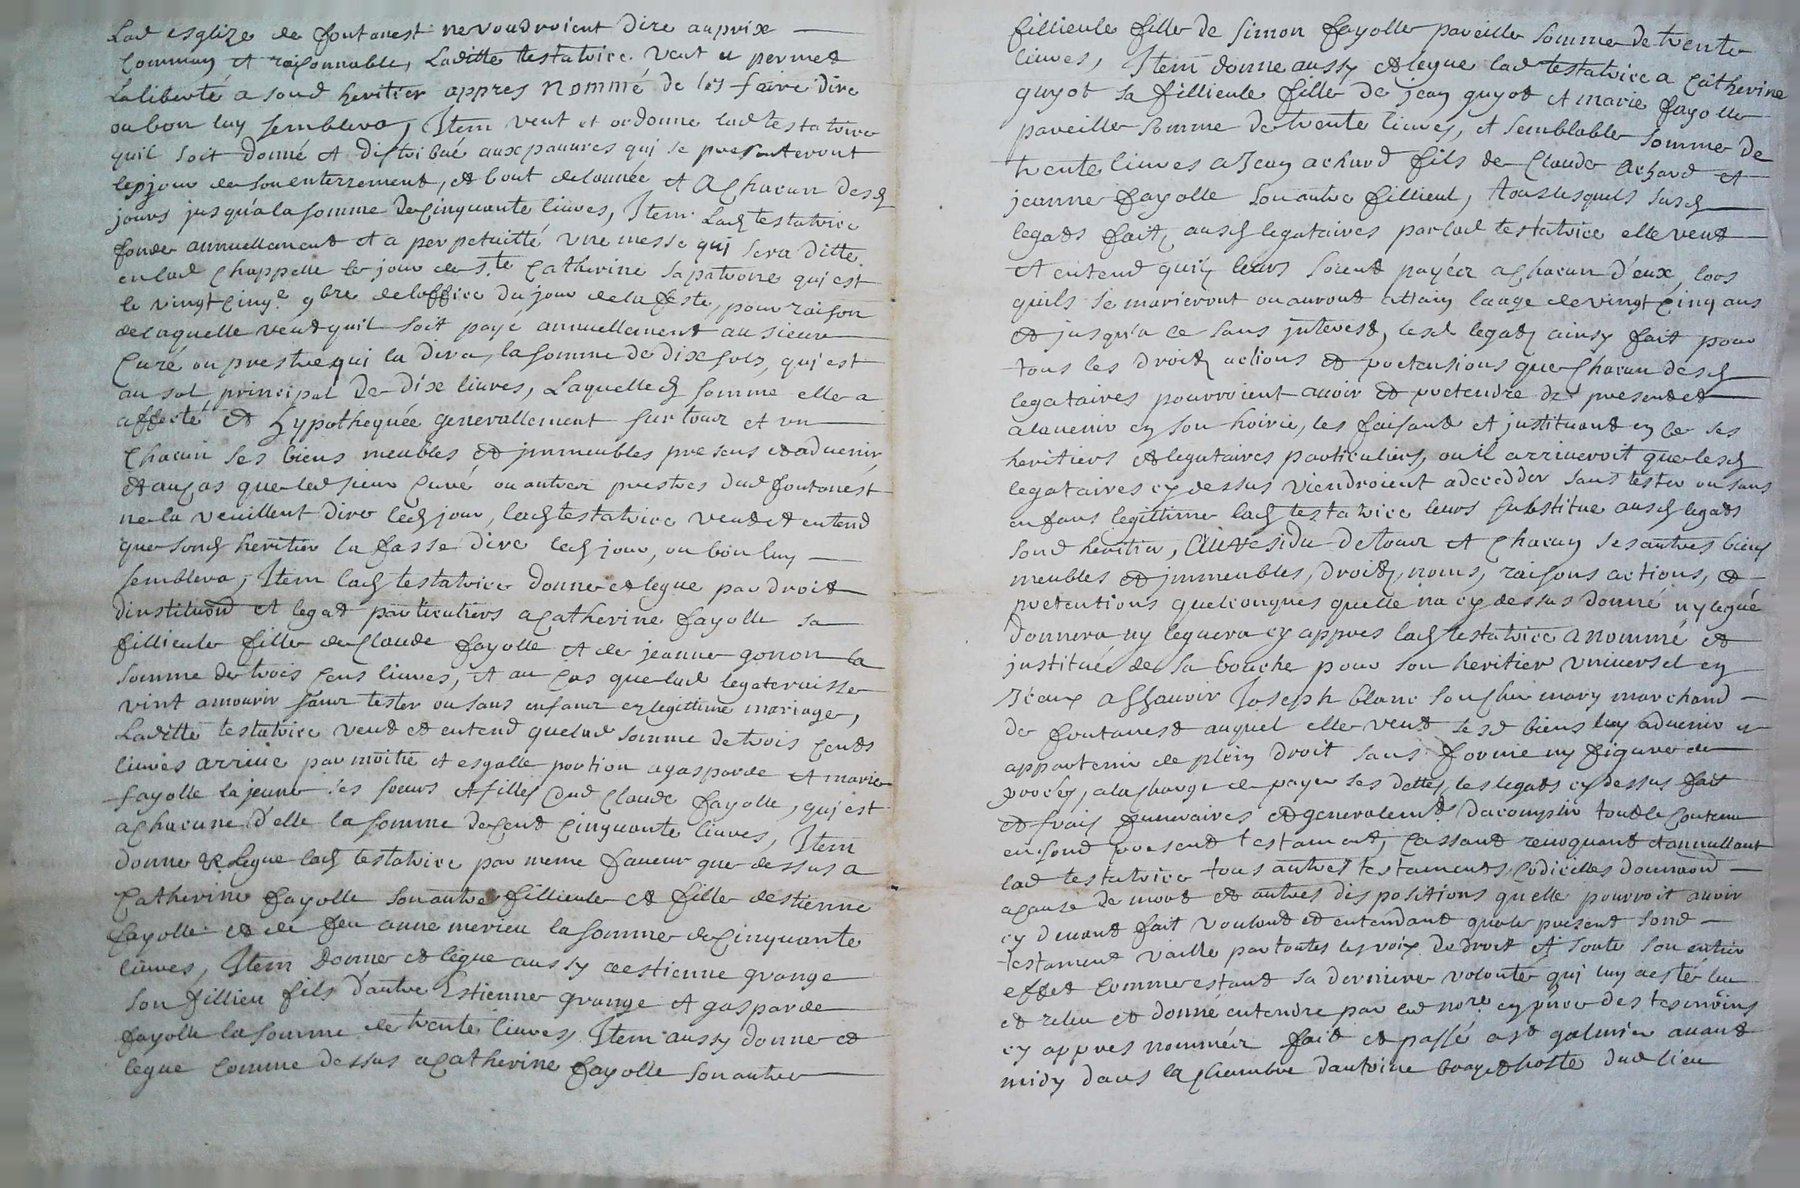 Lad esglize de fontanest ne voudroient dire au prix
Commun et raisonnable, Laditte testatrice veut et permet
La liberté a sond heritier appres nommé de les faire dire
ou bon luy semblera, Item veut et ordonne lad testatrice
quil soit donné et distribué aux pauvres qui se presenteront
les jour de son enterrement, et bout de lannée et a chacun desd
jours jusqu'a la somme de cinquante livres, Item Lad testatrice
fonde annuellement et a perpetuitté une messe qui sera ditte
en lad chappelle le jour de s.te Catherine sa patrone qui est
le vingt cinq.e 9bre de loffice du jour de la feste, pour raison
de laquelle veut quil soit payé annuellement au sieur
Curé ou prestre qui la dira, la somme de dix sols, qui est
au sol principal de dix livres, Laquelle d somme elle a
affecté et hypothequée generallement sur tour et un
chacun ses biens meubles et jmmeubles presens et advenir,
et au cas que led sieur Curé ou autrer prestres dud fontanest
ne la veuillent dire led jour, lad testatrice veut et entend
que sond heritier la fasse dire led jour, ou bon luy
semblera, Item lad testatrice donne et legue par droit
dinstitution et legat particuliers a Catherine fayolle sa
fillieule fille de Claude fayolle et de jeanne gonon la
somme de trois cens livres, et au cas que lad legataraisse
vint amourir sanr tester ou sans enfanr en legittime mariage,
Laditte testatrice veut et entend quelad somme de trois cents
livres arrive par moitie et esgalle portion a gasparde et marie
fayolle la jeune ses sœurs et filles dud Claude fayolle, qui est
a chacune d'elle la somme de cent cinquante livres, Item
donne et legue lad testatrice par meme faveur que dessus a
Catherine fayolle son autre fillieule et fille destienne
fayolle et de feu anne merieu la somme de cinquante
livres, Item donne et legue aussy a estienne grange
son fillieu fils d'autre Estienne grange et gasparde
fayolle la somme de trente livres, Item aussy donne et
legue comme dessus a catherine fayolle son autre
fillieule fille de simon fayolle pareille somme de trente
livres, Item donne aussy et legue lad testatrice a Catherine
guyot sa fillieule fille de jean guyot et marie fayolle
pareille somme de trente livres, et semblable somme de
trente livres a Jean achard fils de Claude achard et
jeanne fayolle son autre fillieul, tous lesquels susd
legats faits ausd legataires par lad testatrice elle veut
et entend quils leurs soient payéer a chacun d'eux lors
quils se marieront ou auront attain laage de vingt cinq ans
et jusqu'a ce sans jnterest, lesd legats ainsy fait pour
tous les droits actions et pretensions que chacun desd
legataires pourroient avoir et pretendre de present et
a lavenir en son hoirie, les faisant et jnstituant en ce ses
heritiers et legataires particuliers, ou il arriveroit que lesd
legataires cy dessus viendroient adecedder sans tester ou sans
enfans legittime lad testatrice leurs substitue ausd legats
sond heritier, Au residu de tour et chacun ses autres biens
meubles et jmmeubles, droits, noms, raisons actions, et
pretentions quelconques quelle na cy dessus donné ny legué
donnera ny leguera cy appres lad testatrice a nommé et
jnstitué de sa bouche pour son heritier universel en
Jceux assavoir Joseph blanc son cher mary marchand
de fontanest auquel elle veut lesd biens luy advenir et
appartenir de plein droit sans forme ny figure de
procez, a la charge de payer ses dettes, les legats cy dessus fait
et frais funeraires et generalemt dacomplir tout le contenu
en sond present testament, cassant revoquant et annullant
lad testatrice tous autres testaments codicilles donnaon
a cause de mort et autres dispositions quelle pourroit avoir
cy devant fait voulant et entendant que le present sond
testament vaille par toutes les voix de droit et sorte son entier
effet comme estant sa derniere volonté qui luy a esté lue
et relue et donné entendre par led nore en pnce des tesmoins
cy appres nomméz fait et passé a st galmier avant
midy dans la chambre dantoine boayet hoste dud lieu